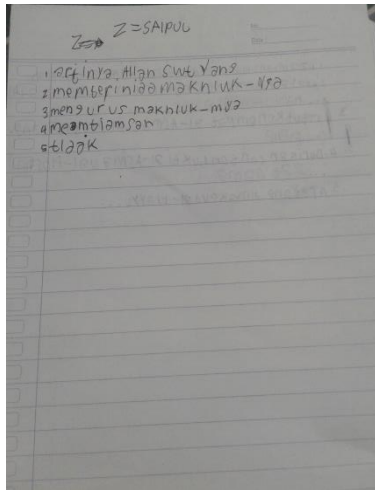 Z Z = SAIPUL
1 artinya. Allah Swt Yang
2 memberi nida makhluk - Nya
3 mengurus makhluk - mya
4
5 tidak